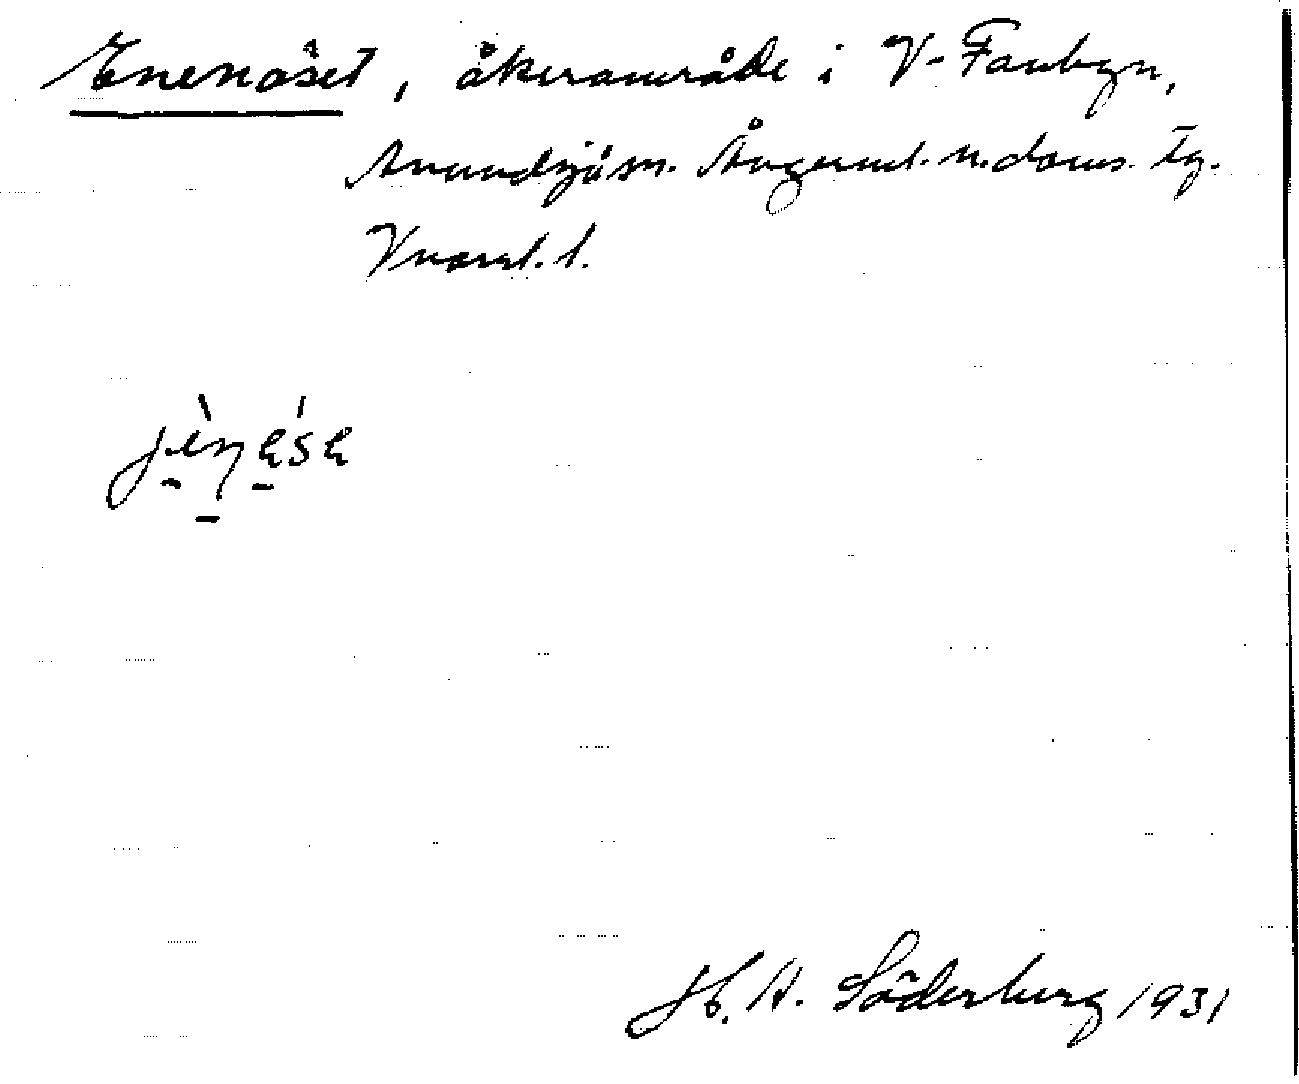 Enenäset, åkerområde i V-Fanbyn,
Anundsjö sn. Ångerml. n. doms. Tg.
Vnorrl. l.
H. A. Söderberg 1931